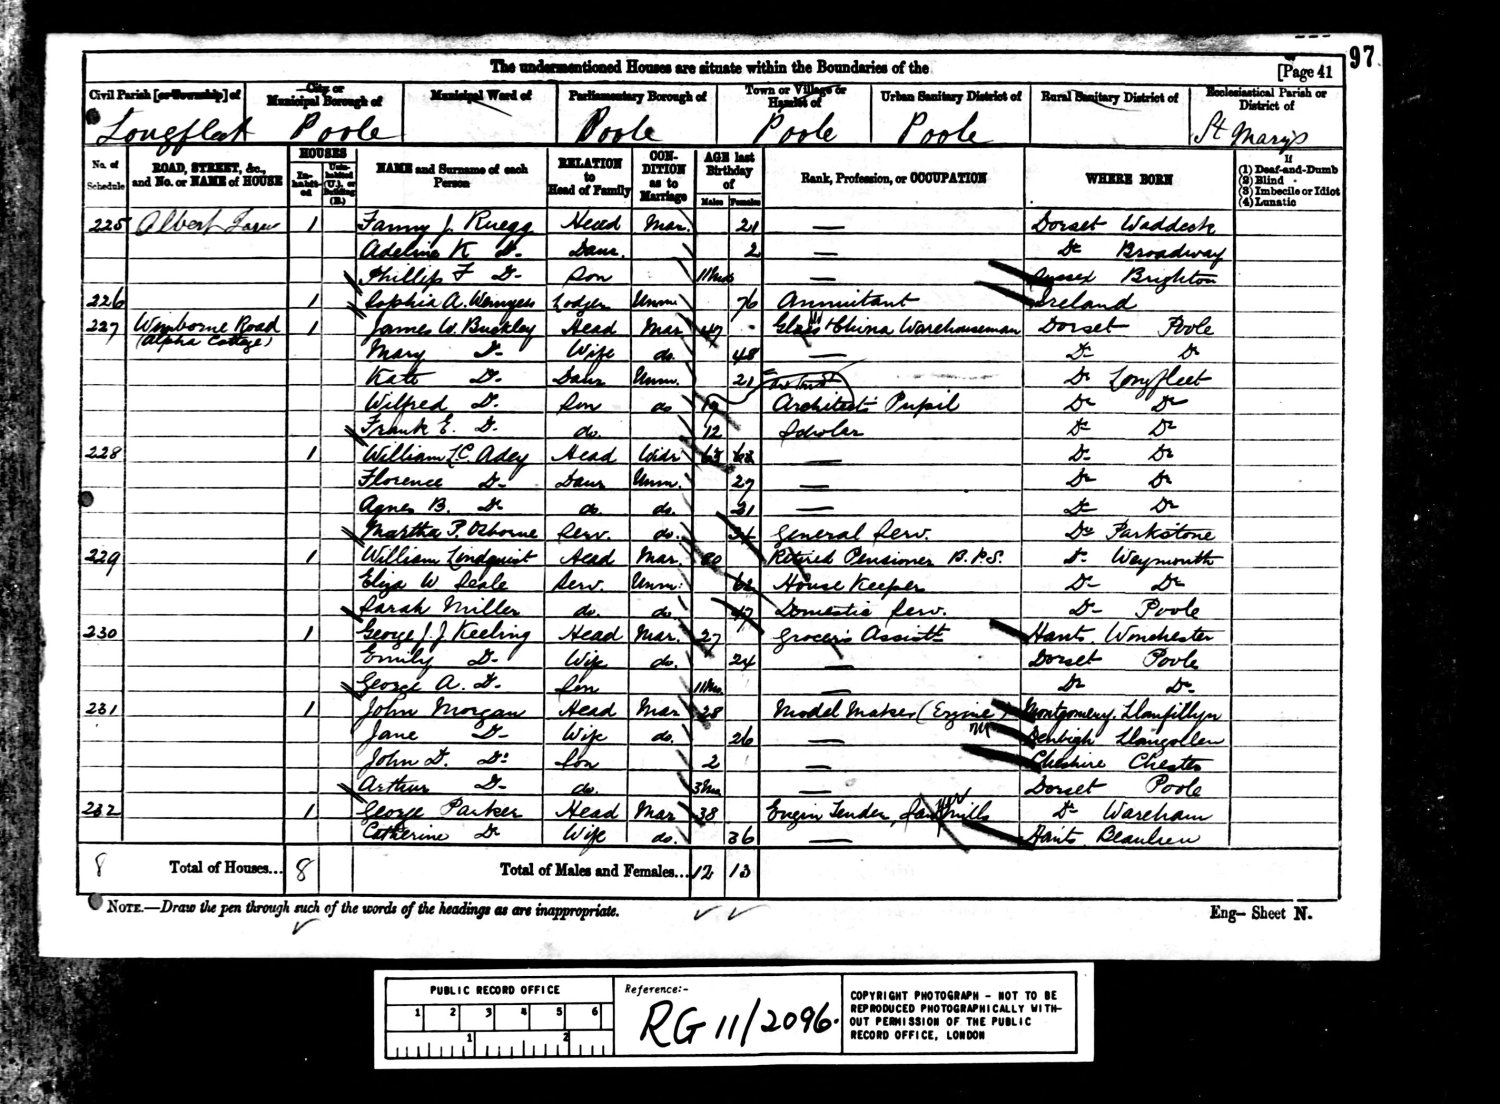 97
The undermentioned Houses are situate within the Boundaries of the
[Page 41
Civil Parish [or Township] of
City or Municipal Borough of
Municipal Ward of
Parliamentary Borough of
Town or Village or Hamlet of
Urban Sanitary District of
Rural Sanitary District of
Ecclesiastical Parish or District of
Longfleet Poole Poole Poole Poole St Mary's
No. of Schedule
ROAD, STREET, &c., and No. or NAME of HOUSE
HOUSES
In-habit-ed
Unin-habited (U.), or Building (B.)
NAME and Surname of each Person
RELATION to Head of Family
CON-DITION as to Marriage
AGE last Birthday of
Males Females
Rank, Profession, or OCCUPATION
WHERE BORN
If
(1) Deaf-and-Dumb
(2) Blind
(3) Imbecile or Idiot
(4) Lunatic
225 Albert 1 Fanny J. Ruegg Head Mar. 21 — Dorset Waddock
Adeline K Do Daur. 2 — Do Broadway
Phillip F Do Son 11 Mos — Sussex Brighton
226 1 Sophia A. Wemyess Lodger Unm 76 Annuitant Ireland
227 Wimborne Road 1 James W. Buckley Head Mar 47 Glass & China Warehouseman Dorset Poole
(Alpha Cottage) Mary Do Wife do. 48 — Do Do
Kate Do Daur Unm. 21 Do Longfleet
Wilfred Do Son do 19 Architect's Pupil Do Do
Frank E. Do do. 12 Scholar Do Do
228 1 William L.C. Adey Head Widr 63 — Do Do
Florence Do Daur Unm. 27 — Do Do
Agnes B. Do do. do. 21 — Do Do
Martha P. Osborne Serv. do. 34 General Serv. Do Parkstone
229 1 William Lindquist Head Mar. 80 Retired Pensioner B.P.S. Do Weymouth
Eliza W. Seale Serv. Unm. 62 House Keeper Do Do
Sarah Miller do. do 47 Domestic Serv. Do Poole
230 1 George J. J. Keeling Head Mar. 27 Grocer's Assistt Hants Winchester
Emily Do Wife do. 24 — Dorset Poole
George A. Do Son 11 Mos. — Do Do
231 1 John Morgan Head Mar 28 Model Maker (Engine) Montgomery. Llanfillyn
Jane Do Wife do. 26 — Denbigh Llangollen
John D. Do Son 2 — Cheshire Chester
Arthur Do do. 3 Mos — Dorset Poole
232 1 George Parker Head Mar 38 Engin Tender, Saw Mills Do Wareham
Catherine Do Wife do. 36 — Hants. Beaulieu
8 Total of Houses... 8 Total of Males and Females... 12 13
NOTE.—Draw the pen through such of the words of the headings as are inappropriate.
Eng— Sheet N.
PUBLIC RECORD OFFICE
1 2 3 4 5 6
1 2
Reference:-
RG 11/2096.
COPYRIGHT PHOTOGRAPH - NOT TO BE
REPRODUCED PHOTOGRAPHICALLY WITH-
OUT PERMISSION OF THE PUBLIC
RECORD OFFICE, LONDON